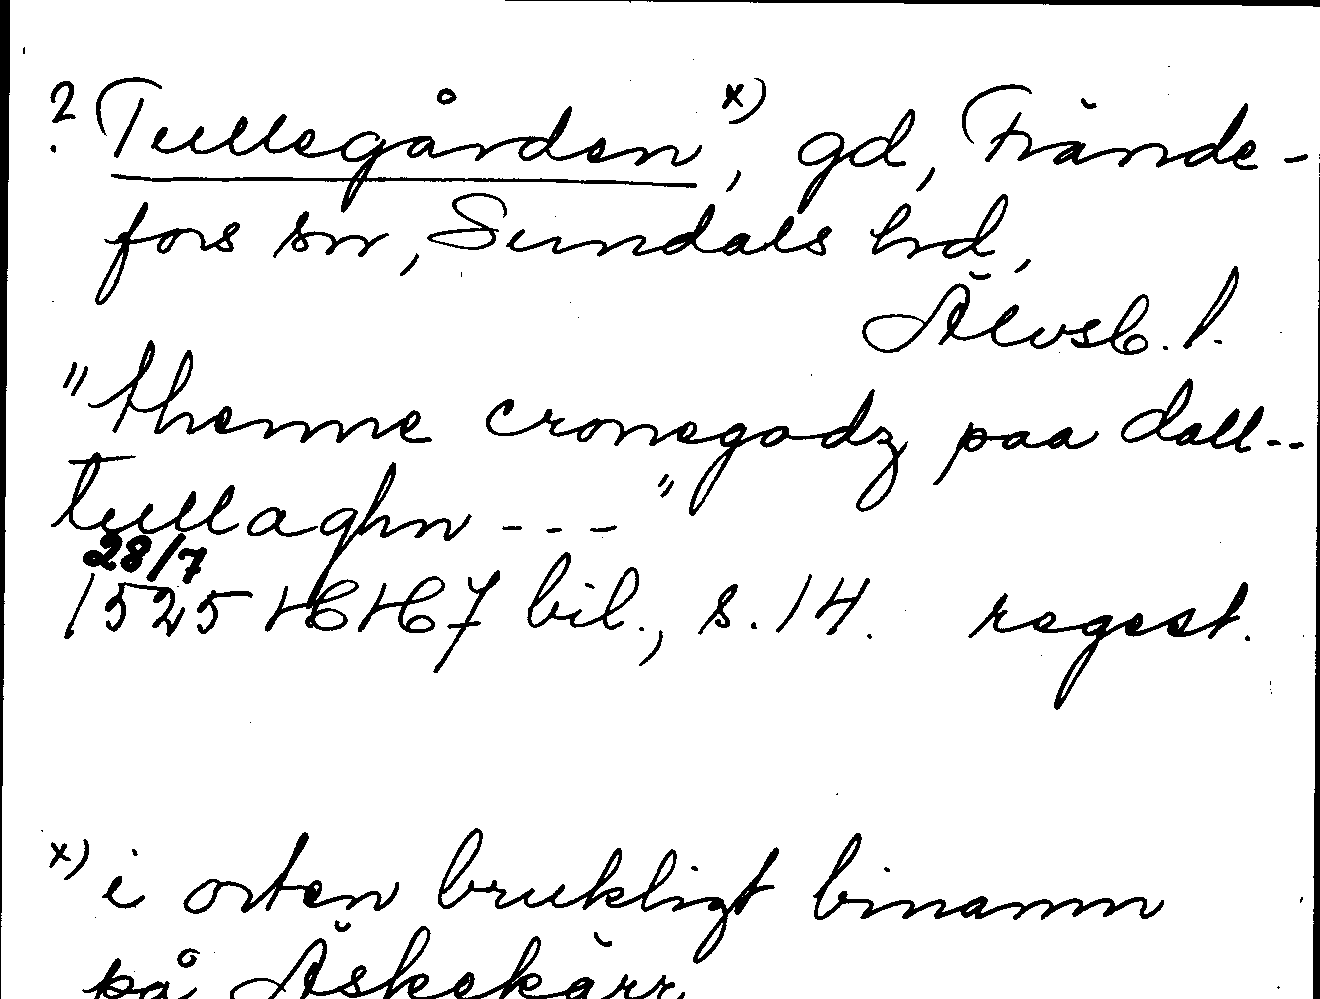 ? Tullegården x), gd, Frände-
fors sn, Sundals hd,
Älvsb. l.
"thenne cronegodz paa dall--
tullaghn - - - "
28/7
1525 HH 7 bil., s. 14. regest.
x) i orten brukligt binamn
på Äskekärr